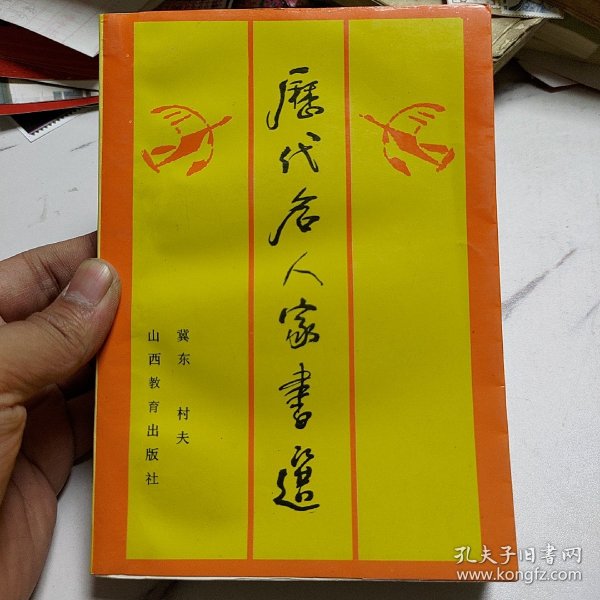 歷代名人家書選
冀东 村夫
山西教育出版社
孔夫子旧书网
www.kongfz.com